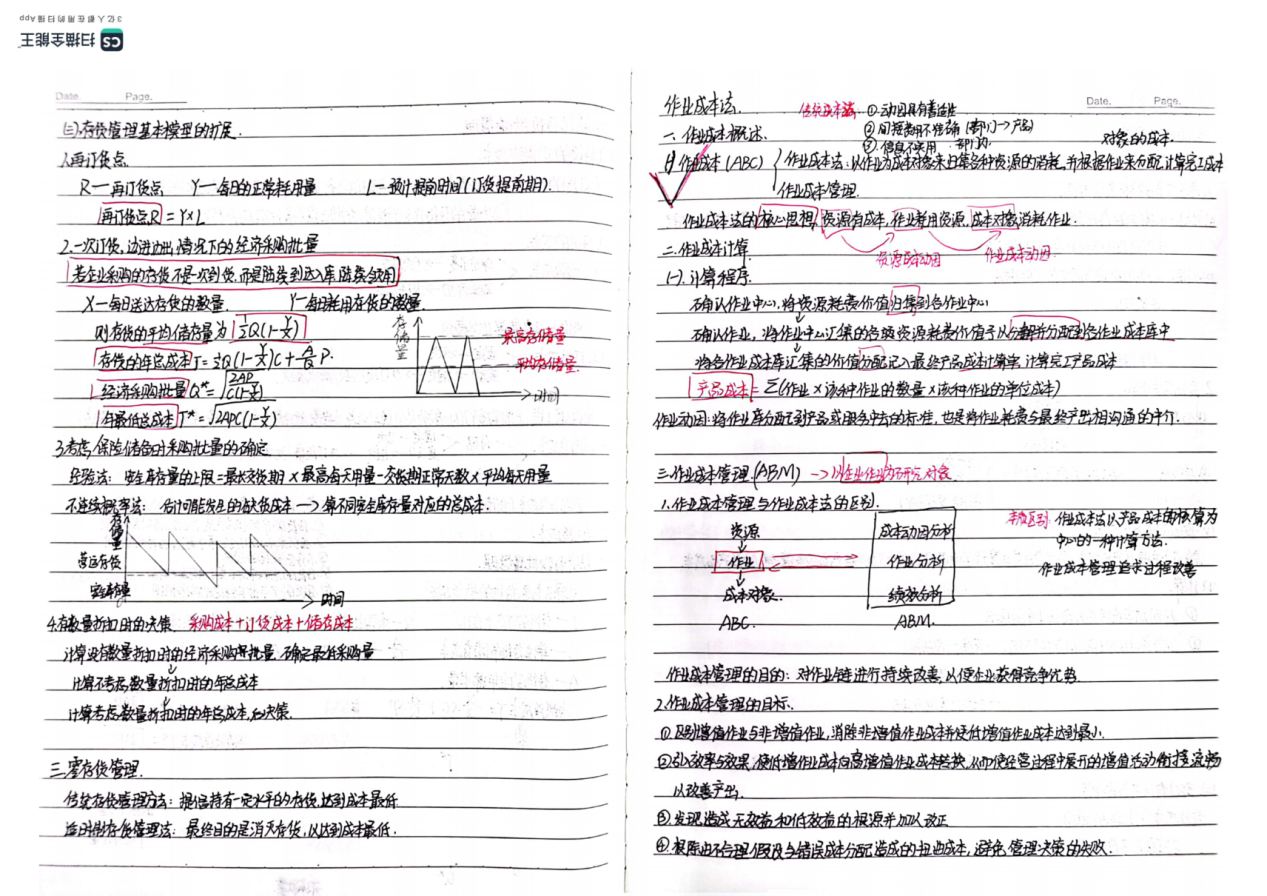 3亿人都在用的扫描App
CS 扫描全能王
Date. Page.
(三).存货管理基本模型的扩展.
1.再订货点.
R—再订货点 Y—每日的正常耗用量 L—预计提前时间(订货提前期).
再订货点R = Y×L
2.一次订货,边进边出情况下的经济采购批量
若企业采购的存货不是一次到货,而是陆续到达入库陆续领用
X—每日送达存货的数量. Y—每日耗用存货的数量
则存货的平均储存量为 ½Q(1-Y/X)
存货的年总成本T=½Q(1-Y/X)C+A/Q·P.
经济采购批量Q*=√(2AP/C(1-Y/X))
年最低总成本T*=√2APC(1-Y/X)
存储量
最高存储量
平均存储量
时间
3.考虑保险储备时采购批量的确定.
经验法: 安全库存量的上限=最长交货期×最高每天用量-交货期正常天数×平均每天用量
不连续概率法: 估计可能发生的缺货成本→算不同安全库存量对应的总成本.
存储量
营运存货
安全存量
时间
4.有数量折扣时的决策. 采购成本+订货成本+储存成本
计算没有数量折扣时的经济采购批量,确定最低采购量
↓
计算不考虑数量折扣时的年总成本
↓
计算考虑数量折扣时的年总成本,后决策.
三.零存货管理.
传统存货管理方法: 提倡持有一定水平的存货,达到成本最低
适时制存货管理法: 最终目的是消灭存货,以达到成本最低.
Date. Page.
作业成本法. 传统成本法 ①动因具有普适性
②间接费用不准确(部门→产品)
一.作业成本概述. ③信息不实用.
对象的成本.
作业成本(ABC) 作业成本法:以作业为成本对象来归集各种资源的消耗,并根据作业来分配计算完工成本
作业成本管理.
作业成本法的核心思想,资源有成本,作业耗用资源,成本对象消耗作业.
资源成本动因 作业成本动因.
二.作业成本计算.
(一).计算程序.
确认作业中心,将资源耗费价值归集到各作业中心
确认作业,将作业中心汇集的各类资源耗费价值予以分解并分配到各作业成本库中
将各作业成本库汇集的价值分配记入最终产品成本计算单,计算完工产品成本
产品成本=Σ(作业×该种作业的数量×该种作业的单位成本)
作业动因:将作业库分配到产品或服务中去的标准,也是将作业耗费与最终产出相沟通的中介.
三.作业成本管理.(ABM) →以企业作业为研究对象
1.作业成本管理与作业成本法的区别.
资源
↓
作业
↓
成本对象.
ABC.
成本动因分析
作业分析
绩效分析
ABM.
本质区别 作业成本法以产品成本的核算为
中心的一种计算方法.
作业成本管理追求过程改善
作业成本管理的目的: 对作业链进行持续改善,以便企业获得竞争优势.
2.作业成本管理的目标.
①区别增值作业与非增值作业,消除非增值作业成本并使低增值作业成本达到最小.
②引入效率与效果,使低增作业成本向高增值作业成本转换,从而使经营过程中展开的增值活动衔接流畅
以改善产出.
③发现造成无效益和低效益的根源并加以改正
④根除由不合理假设与错误成本分配造成的扭曲成本,避免管理决策的失败.